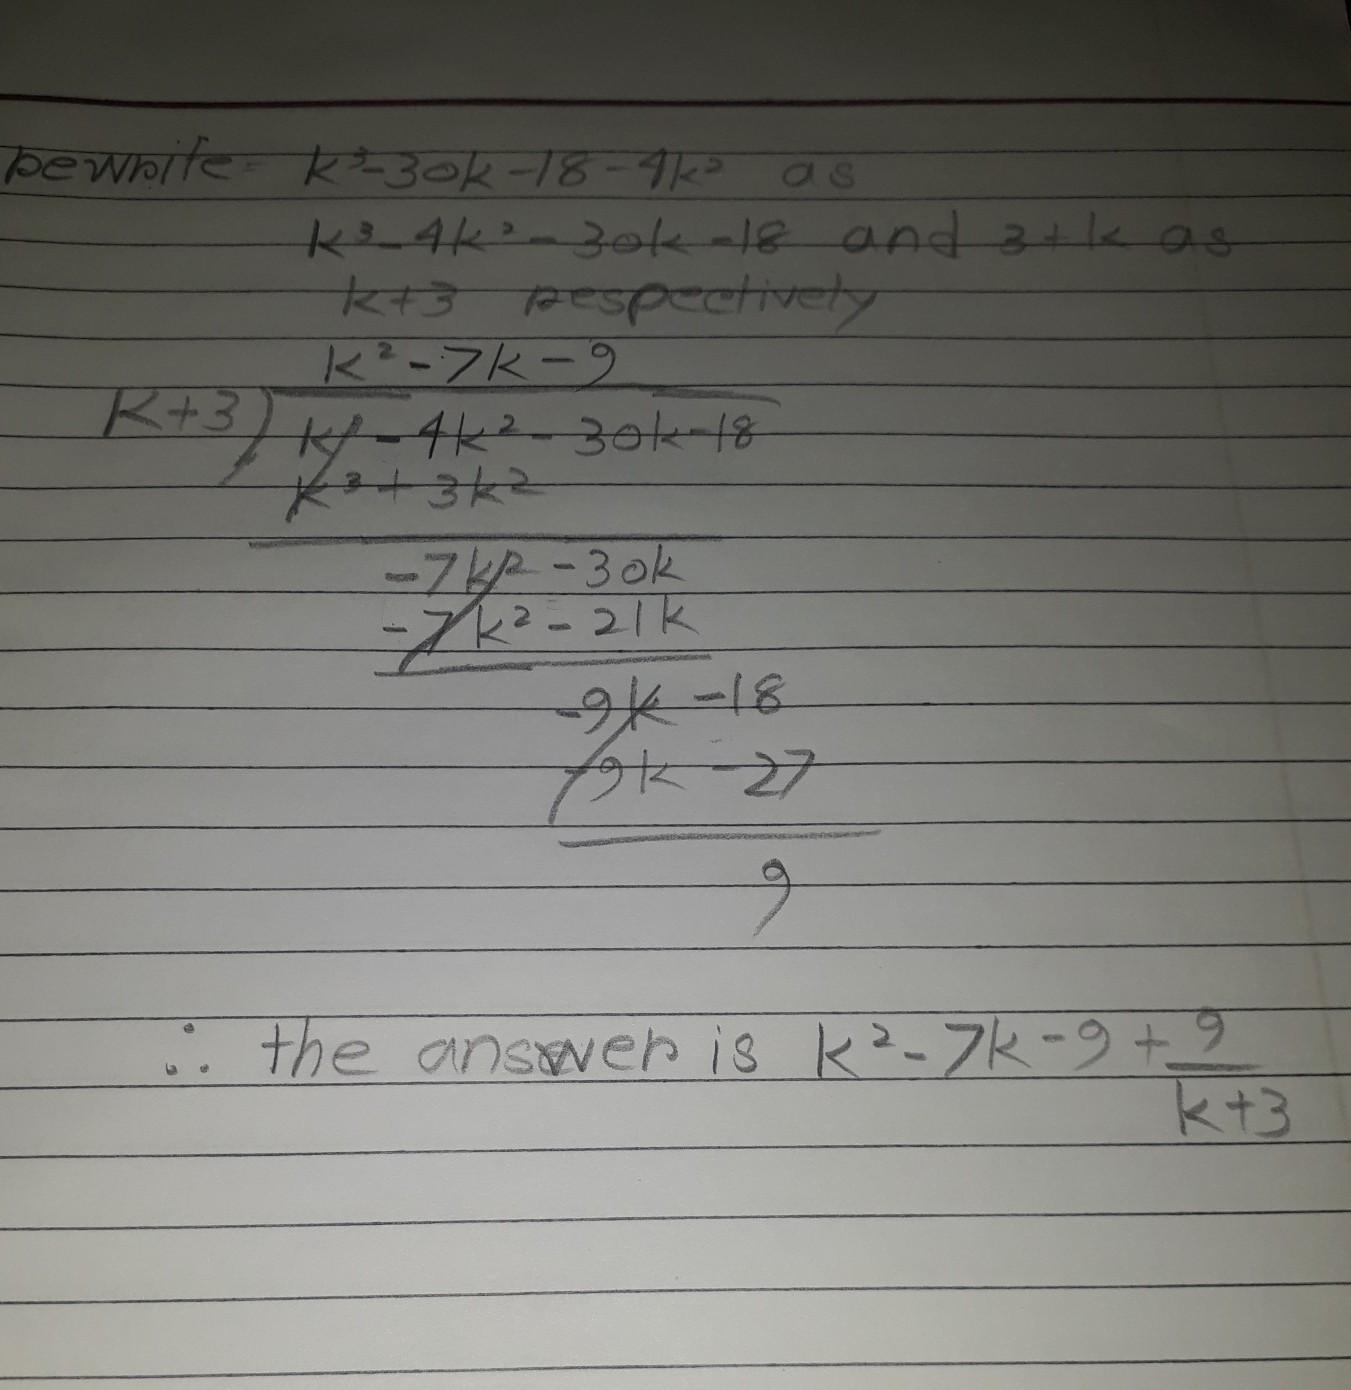 Rewrite k³-30k-18-4k² as
k³-4k²-30k-18 and 3+k as
k+3 respectively
k²-7k-9
k+3)k³-4k²-30k-18
k³+3k²
-7k²-30k
-7k²-21k
-9k-18
-9k-27
9
∴ the answer is k²-7k-9+9/k+3